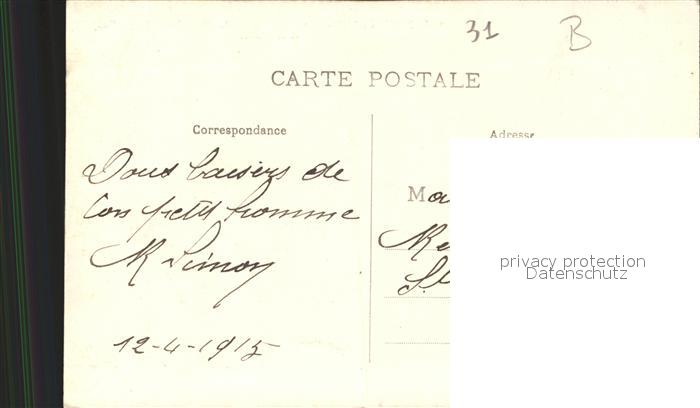 31 B
CARTE POSTALE
Correspondance
Adresse
Doux baisers de
ton petit homme
M Simon
12-4-1915
Ma
privacy protection
Datenschutz